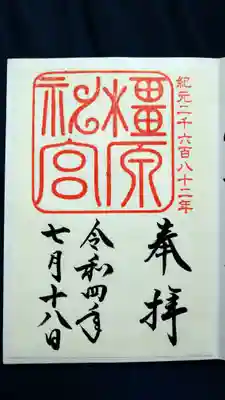 紀元二千六百八十二年
橿原神宮
奉拝
令和四年
七月十八日